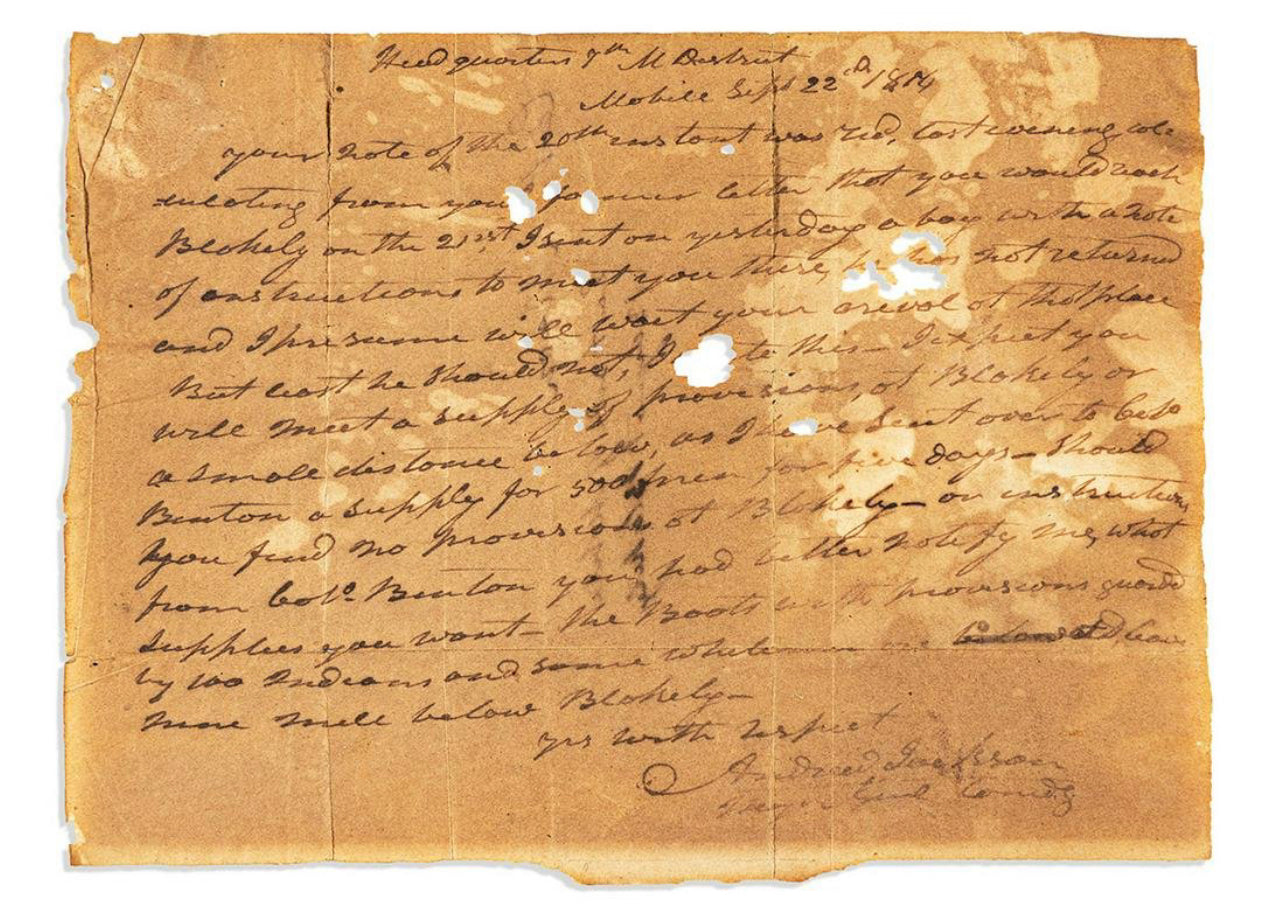 Head quarters 7th M District
Mobile Sept 22cd, 1814
your note of the 20th instant was recd, last evening cal-
culating from your former letter that you would reach
Blakely on the 21st I sent on yesterday a boy with a note
of instructions to meet you there, he has not returned
and I presume will wait your arival at that place
But least he should not, I this— I expect you
will meet a supply of provisions, at Blakely or
a small distance below, as I have sent over to Colo
Benton a supply for 500 men for five days— Should
you find no provisions at Blakely— or instructions
from Colo. Benton you had better notify me, what
supplies you want— the Boats with provisions guarded
by 100 Indians and some whitemen are
nine mile below Blakely—
yrs with respect
Andrew Jackson
Major Genl Comdg